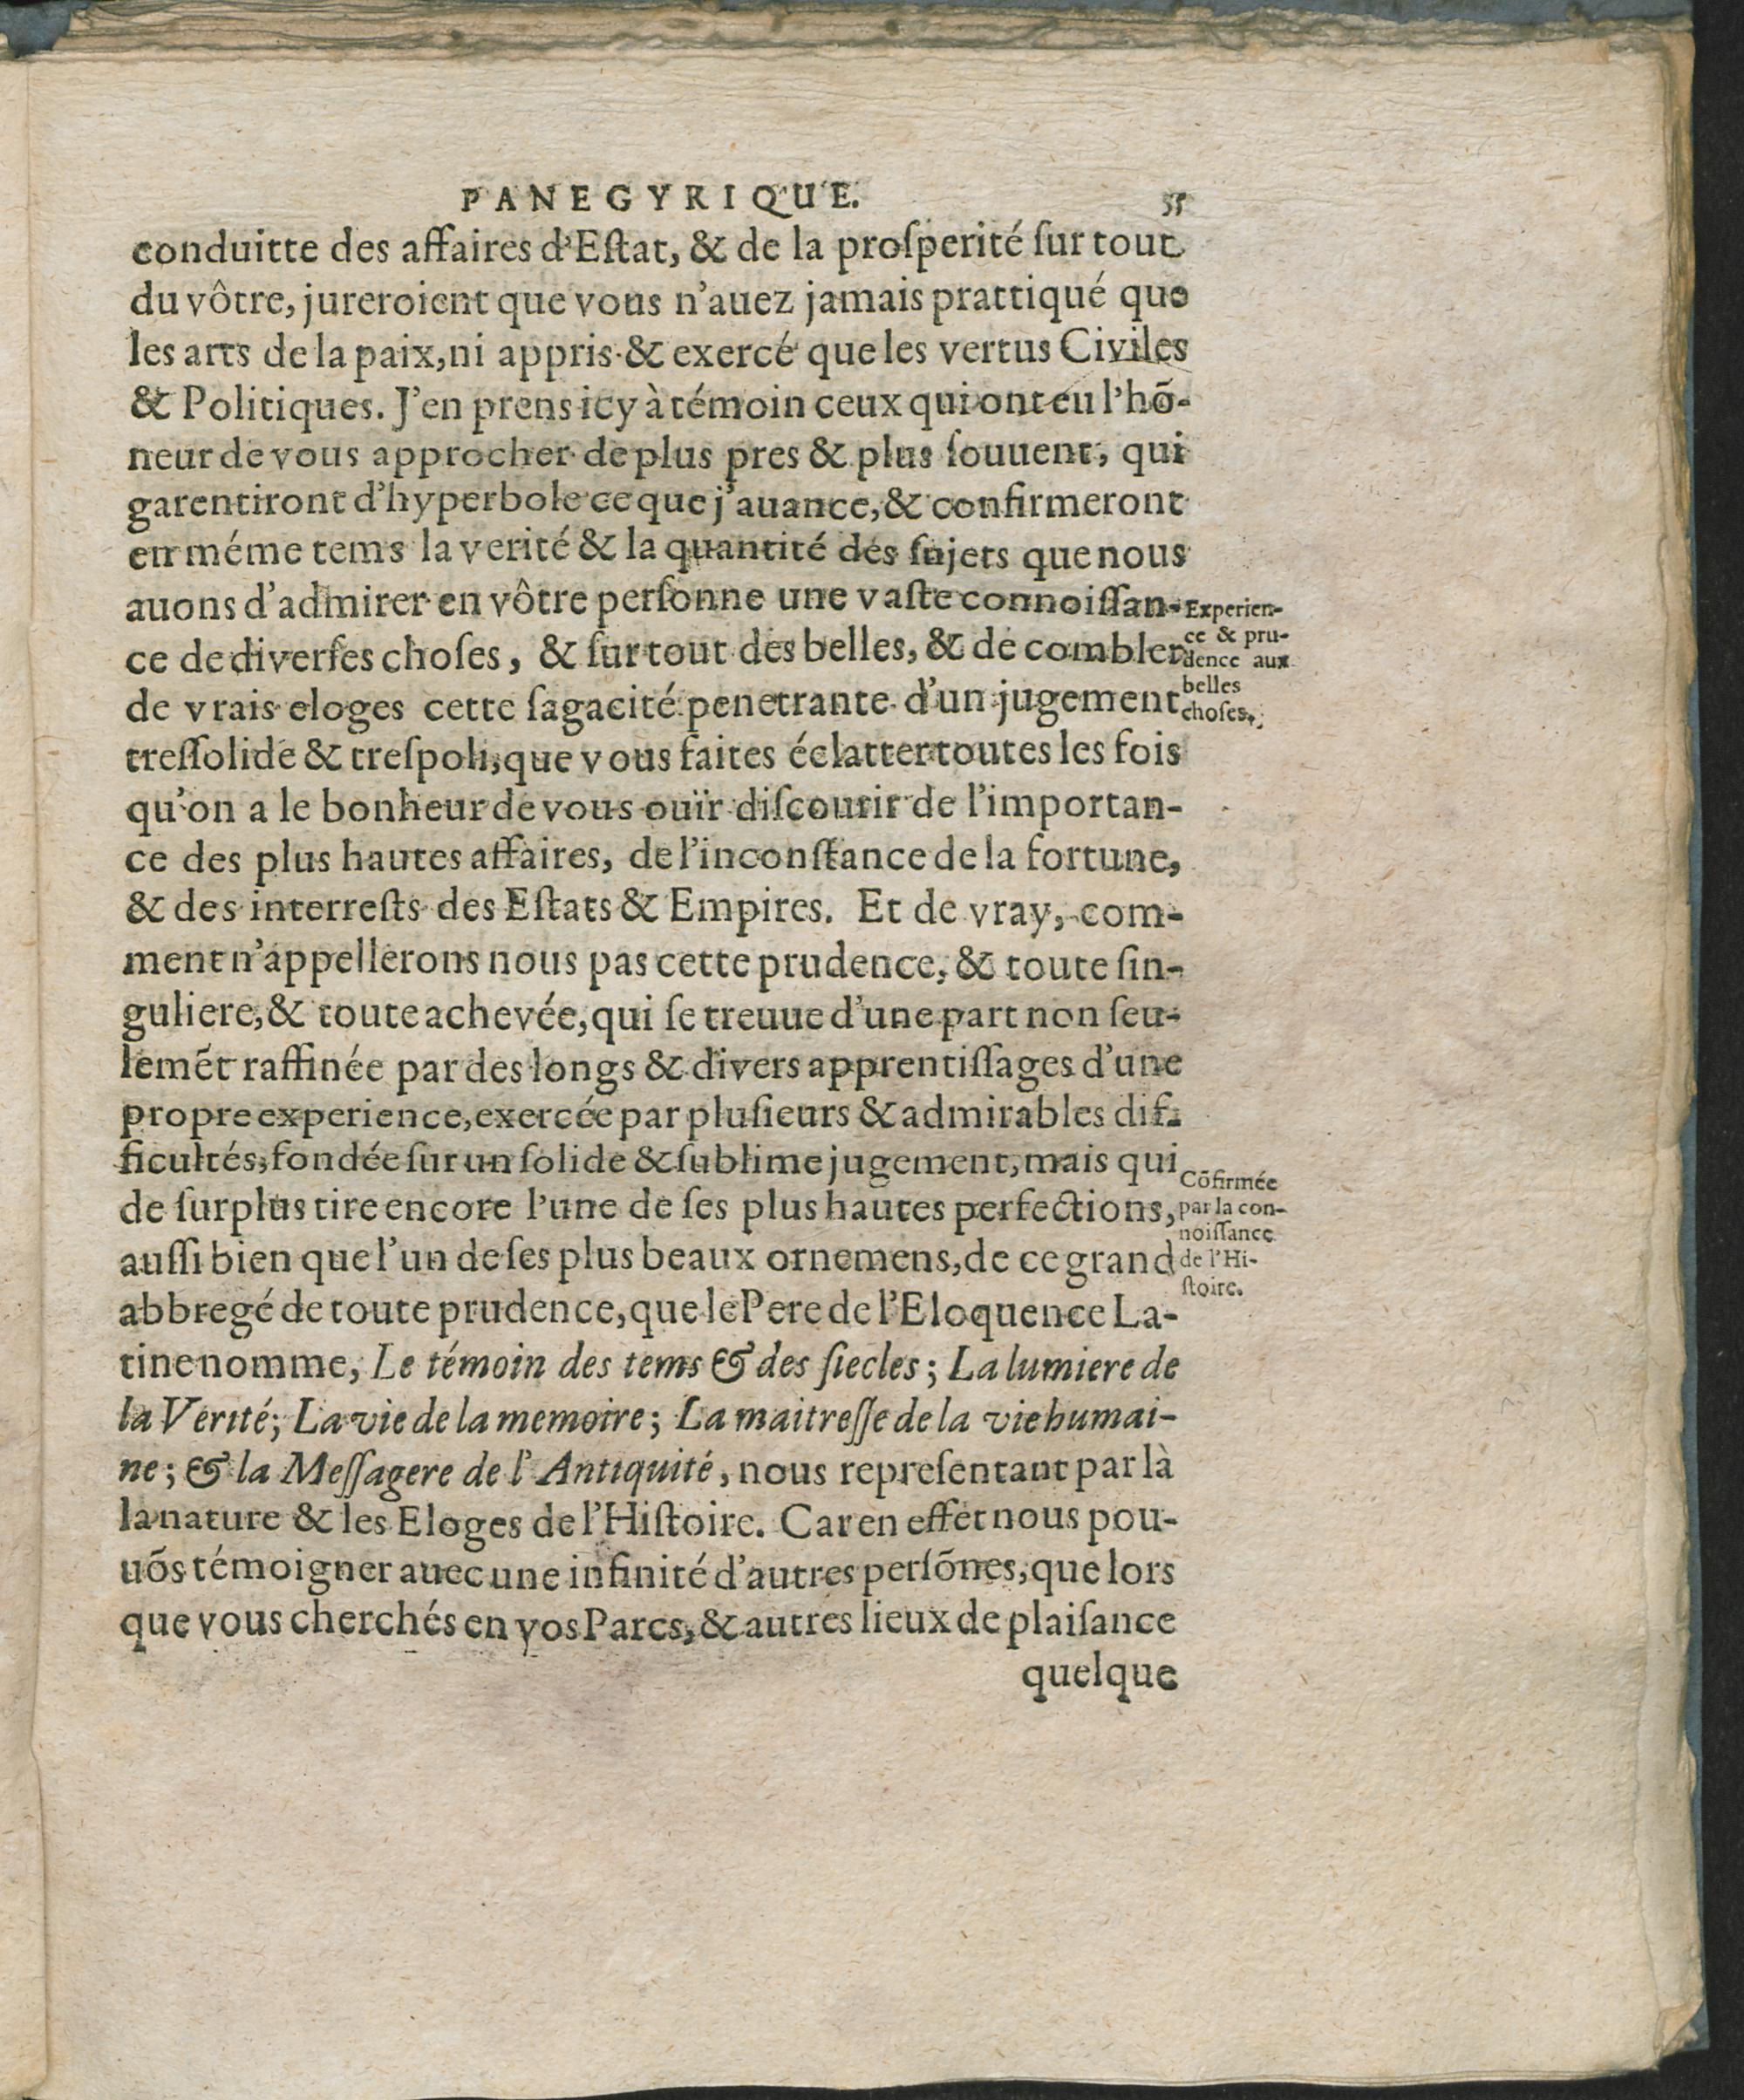 PANEGYRIQUE. 55
conduitte des affaires d'Eſtat, & de la proſperité ſur tout
du vôtre, jureroient que vous n'auez jamais prattiqué que
les arts de la paix, ni appris & exercé que les vertus Civiles
& Politiques. J'en prens icy à témoin ceux qui ont eu l'hõ-
neur de vous approcher de plus pres & plus ſouuent, qui
garentiront d'hyperbole ce que j'auance, & confirmeront
en méme tems la verité & la quantité des ſujets que nous
auons d'admirer en vôtre perſonne une vaſte connoiſſan-
ce de diverſes choſes, & ſur tout des belles, & de combler
de vrais eloges cette ſagacité penetrante d'un jugement
treſſolide & treſpoli, que vous faites éclatter toutes les fois
qu'on a le bonheur de vous ouïr diſcourir de l'importan-
ce des plus hautes affaires, de l'inconſtance de la fortune,
& des interreſts des Eſtats & Empires. Et de vray, com-
ment n'appellerons nous pas cette prudence, & toute ſin-
guliere, & toute achevée, qui ſe treuue d'une part non ſeu-
lemẽt raffinée par des longs & divers apprentiſſages d'une
propre experience, exercée par pluſieurs & admirables dif-
ficultés, fondée ſur un ſolide & ſublime jugement, mais qui
de ſurplus tire encore l'une de ſes plus hautes perfections,
auſſi bien que l'un de ſes plus beaux ornemens, de ce grand
abbregé de toute prudence, que le Pere de l'Eloquence La-
tine nomme, Le témoin des tems & des ſiecles; La lumiere de
la Verité; La vie de la memoire; La maitreſſe de la vie humai-
ne; & la Meſſagere de l'Antiquité, nous repreſentant par là
la nature & les Eloges de l'Hiſtoire. Car en effet nous pou-
uõs témoigner auec une infinité d'autres perſõnes, que lors
que vous cherchés en vos Parcs, & autres lieux de plaiſance
quelque
Experien-
ce & pru-
dence aux
belles
choſes.
Cõfirmée
par la con-
noiſſance
de l'Hi-
ſtoire.